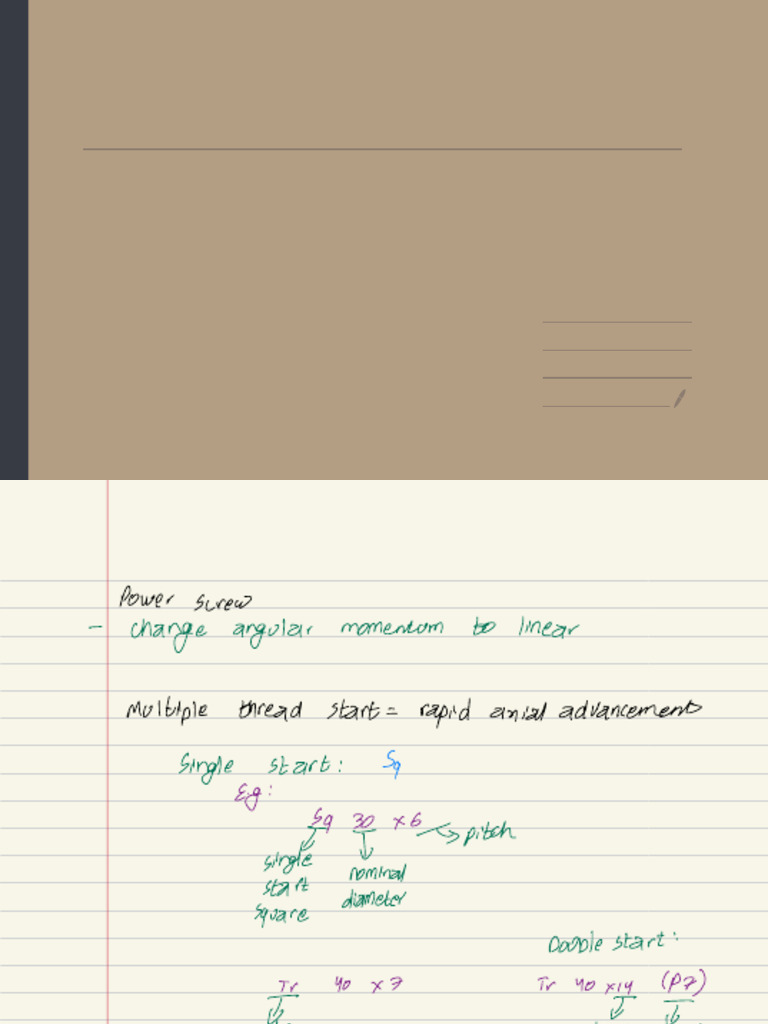 Power screw
- change angular momentum to linear
Multiple thread start = rapid axial advancement
Single start: Sq
E.g:
Sq 30 x 6 → pitch
single nominal
start diameter
square
Double start:
Tr 40 x 7 Tr 40 x 14 (P7)